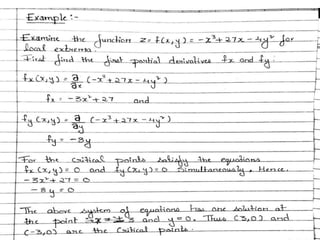 Example :-
Examine the function z = f(x,y) = -x³ + 27x - 4y² for
local extrema.
First find the first partial derivatives fx and fy.
fx(x,y) = ∂/∂x (-x³ + 27x - 4y²)
fx = -3x² + 27 and
fy(x,y) = ∂/∂y (-x³ + 27x - 4y²)
fy = -8y
For the critical points satisfy the equations
fx(x,y) = 0 and fy(x,y) = 0 simultaneously. Hence,
-3x² + 27 = 0
-8y = 0
The above system of equations has one solution at
the point x = ±3 and y = 0. Thus (3,0) and
(-3,0) are the critical points.